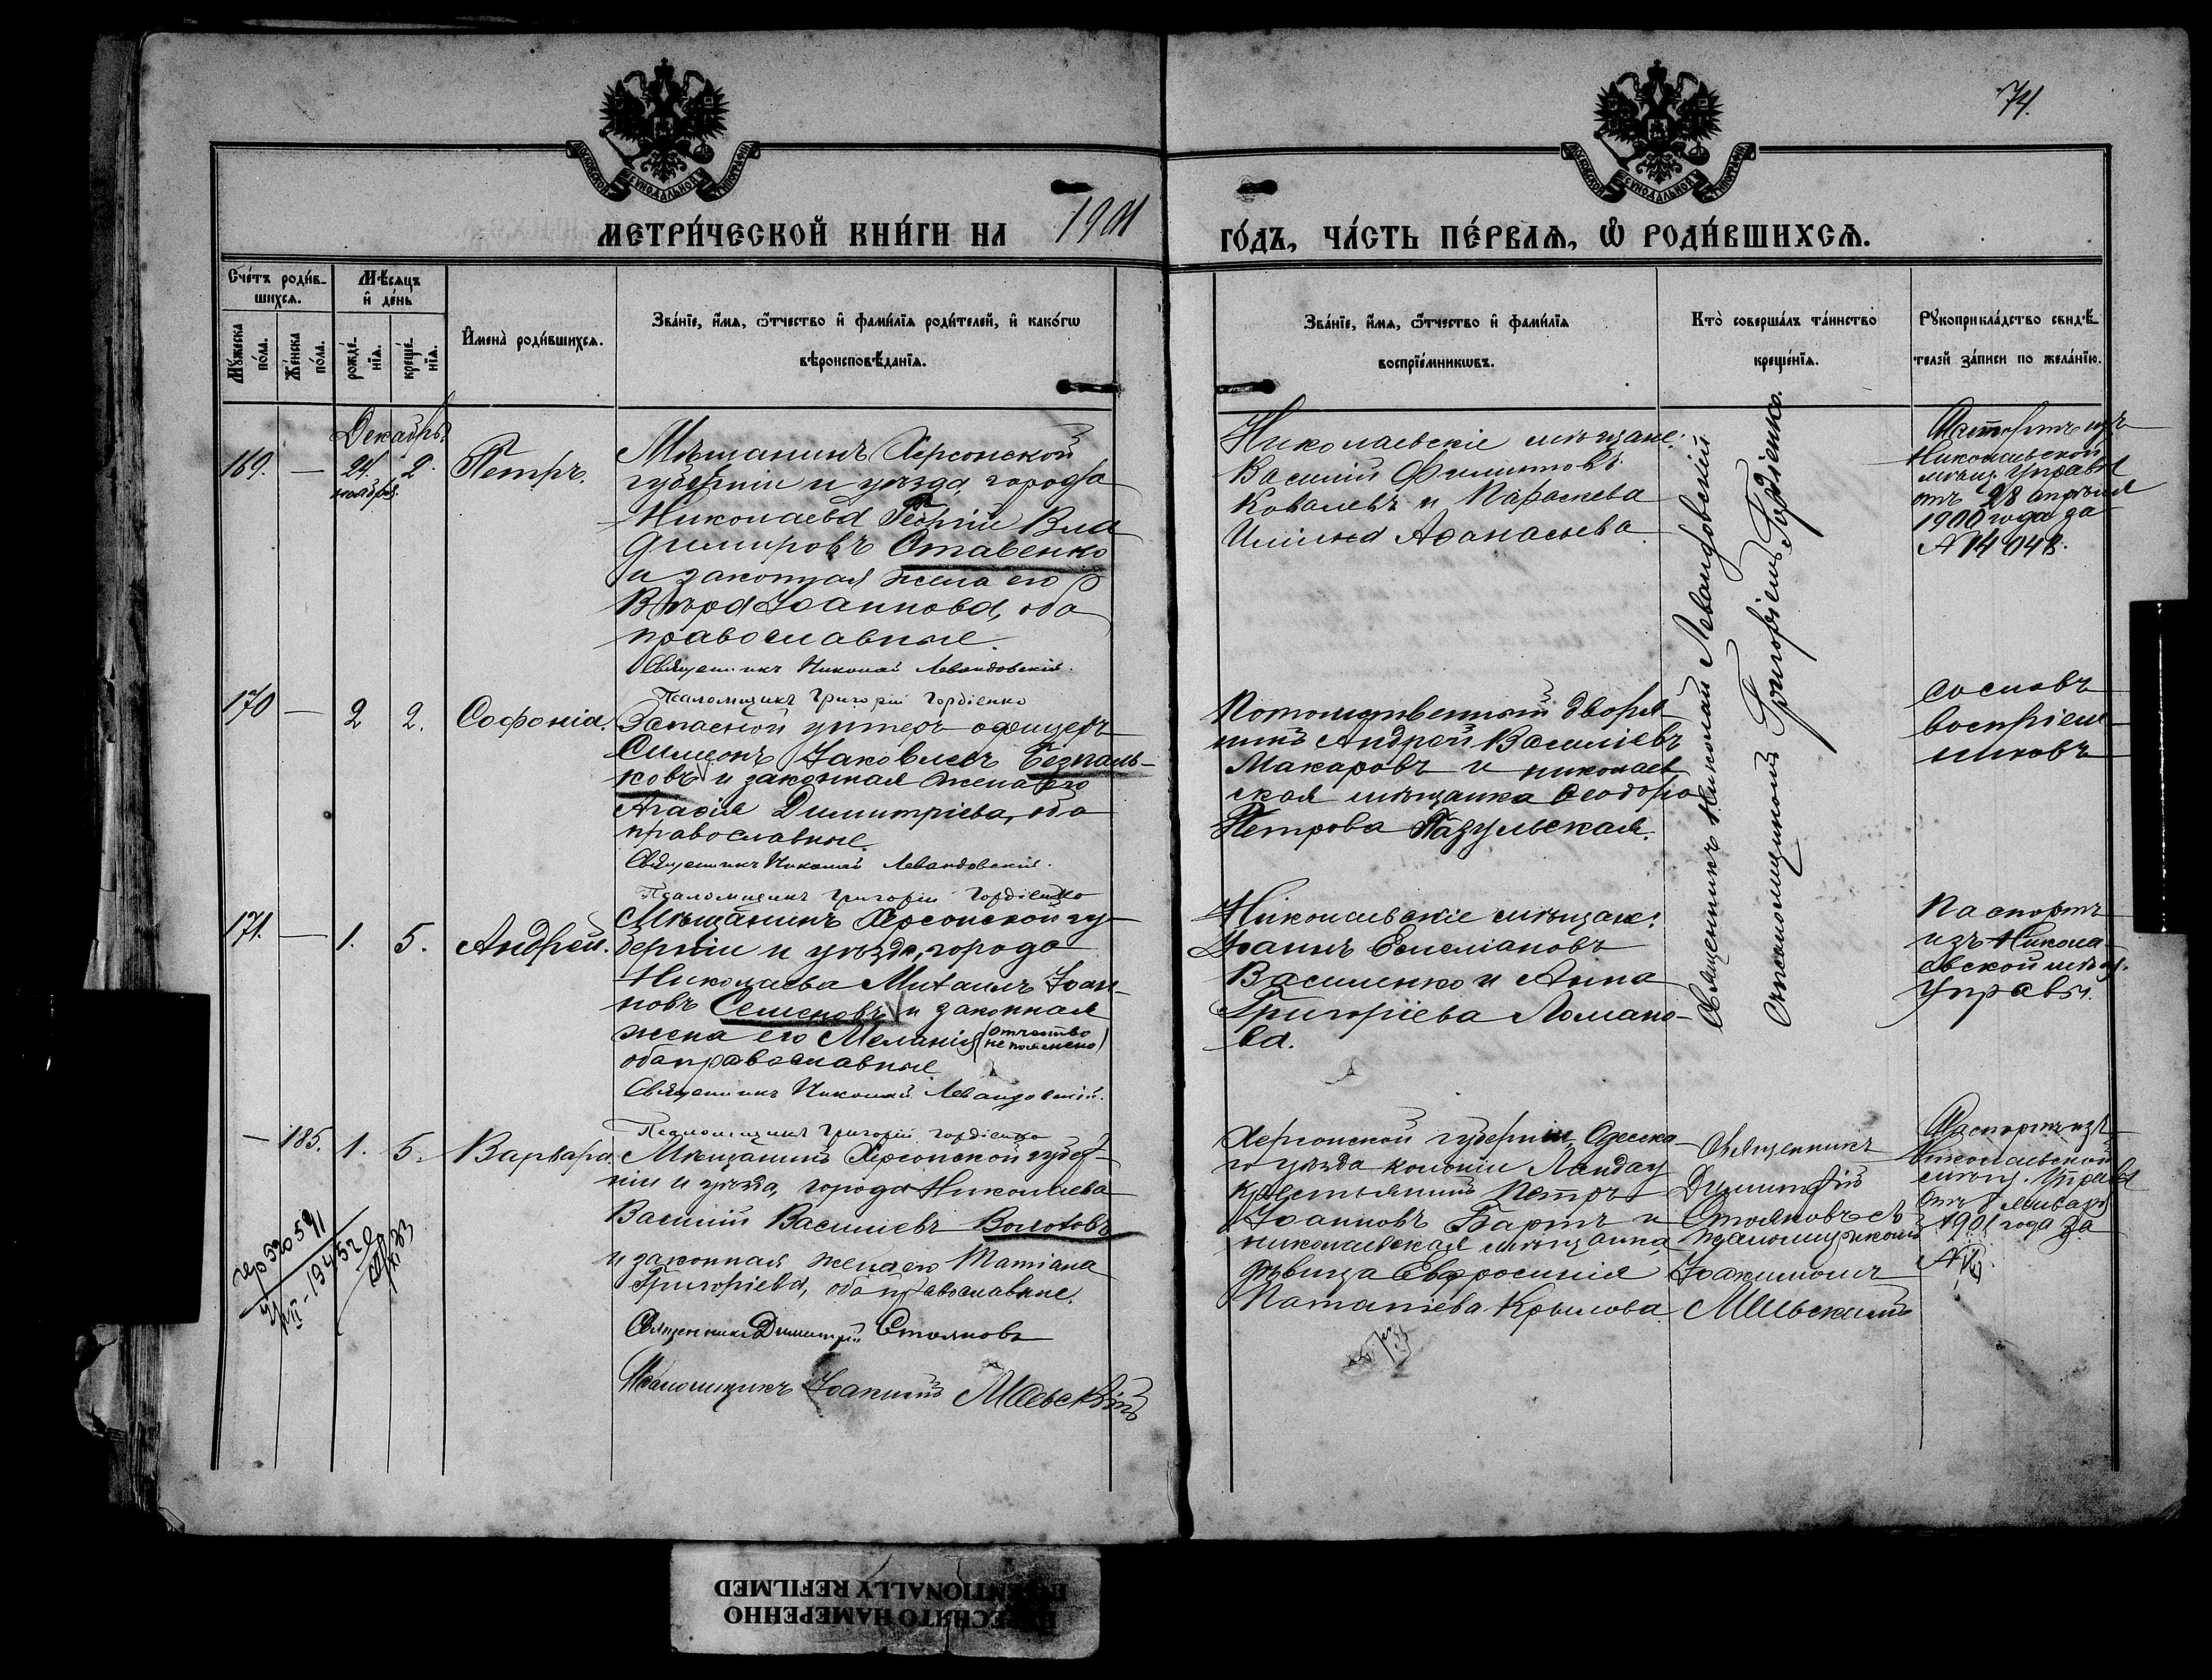 74.
МЕТРИ́ЧЕСКОЙ КНИ́ГИ НА 1901 ГО́ДЪ, ЧА́СТЬ ПЕ́РВАЯ, Ѡ РОДИ́ВШИХСЯ.
Сче́тъ роди́в-
шихся.
Мѣсяцъ
и де́нь
Мꙋжеска
по́ла.
Же́нска
по́ла.
рожде́-
нія.
креще́-
нія.
Имена̀ роди́вшихся.
Зва́нїе, и́мя, ѻ́тчество и фами́лїя роди́телей, и како́гѡ
вѣроисповѣ́данїя.
Зва́нїе, и́мя, ѻ́тчество и фами́лїя
воспрїе́мникѡвъ.
Кто̀ соверша́лъ та́инство
креще́нїя.
Рꙋкоприкла́дство свидѣ́-
телей за́писи по жела́нїю.
Декабрь
169. — 24 ноября. 2. Петръ.
Мѣщанинъ Херсонской
губерніи и уѣзда, города
Николаева Георгій Вла-
димировъ Ставенко
и законная жена его
Вѣра Іоаннова, оба
православные.
Священникъ Николай Левандовскій.
Псаломщикъ Григорій Гордіенко
Николаевскіе мѣщане:
Василій Филиповъ
Ковалевъ и Параскева
Аѳанасьева.
Священникъ Николай Левандовскій
съ псаломщикомъ Григоріемъ Гордіенко.
Паспортъ изъ
Николаевской
мѣщ. Управы
отъ 28 апрѣля
1900 года за
№ 14048.
170 — 2 2. Софонія.
Запасной унтеръ-офицеръ
Симеонъ Іаковлевъ Безпаль-
ковъ и законная жена его
Агаѳія Димитріева, оба
православные.
Священникъ Николай Левандовскій.
Псаломщикъ Григорій Гордіенко
Потомственный дворя-
нинъ Андрей Василіевъ
Макаровъ и николаев-
ская мѣщанка Ѳеодора
Петрова Пазульская.
со словъ
воспріем-
никовъ
171. — 1. 5. Андрей.
Мѣщанинъ Херсонской гу-
берніи и уѣзда, города
Николаева Михаилъ Іоан-
новъ Семеновъ и законная
жена его Меланія (отчество
не помянено)
оба православные
Священникъ Николай Левандовскій.
Псаломщикъ Григорій Гордіенко
Николаевскіе мѣщане:
Іоаннъ Емеліановъ
Василенко и Анна
Григоріева Ломано-
ва.
Паспортъ
изъ Никола-
евской мѣщ.
Управы.
— 185. 1. 5. Варвара.
Мѣщанинъ Херсонской губер-
ніи и уѣзда, города Николаева
Василій Василіевъ Болотовъ
и законная жена его Татіана
Григоріева, оба православные.
Священникъ Димитрій Стояновъ
Псаломщикъ Іоакимъ Маевскій
Херсонской губерніи, Одесска-
го уѣзда колоніи Ландау
крестьянинъ Петръ
Іоанновъ Бартъ и
николаевская мѣщанка,
дѣвица Евфросинія
Крылова.
Священникъ
Димитрій
Стояновъ съ
псаломщикомъ
Іоакимомъ
Маевскимъ
Паспортъ изъ
Николаевской
мѣщ. Управы
отъ января
1901 года за
№
ПЕРЕСНЯТО НАМЕРЕННО
INTENTIONALLY REFILMED